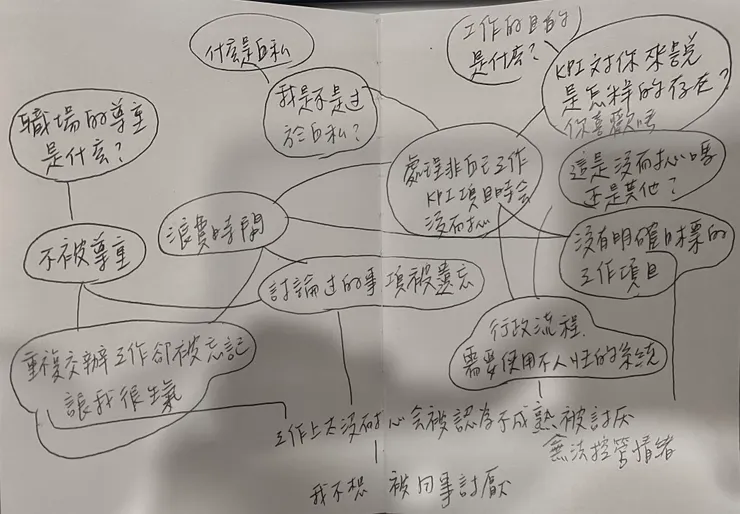 什么是自私
我是不是过
於自私?
工作的目的
是什么?
KPI 对你來說
是怎样的存在?
你喜歡嗎
職場的尊重
是什么?
不被尊重
浪費時間
處理非自己工作
KPI 項目時会
没耐心
這是没耐心嗎
还是其他?
没有明確目標的
工作項目
討論过的事項被遺忘
行政流程
需要使用不人性的系統
重複交辦工作卻被忘記
讓我很生氣
工作上太没耐心会被認为不成熟被討厌
無法控管情緒
我不想 被同事討厭